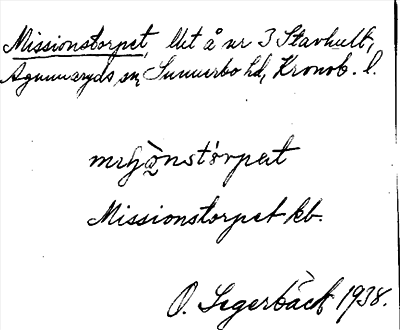 Missionstorpet, lht å nr 3 Stavhult,
Agunnaryds sn, Sunnerbo hd, Kronob. l.
mɩʃɷ̀nstòrpət
Missionstorpet kb.
O. Segerbäck 1938.